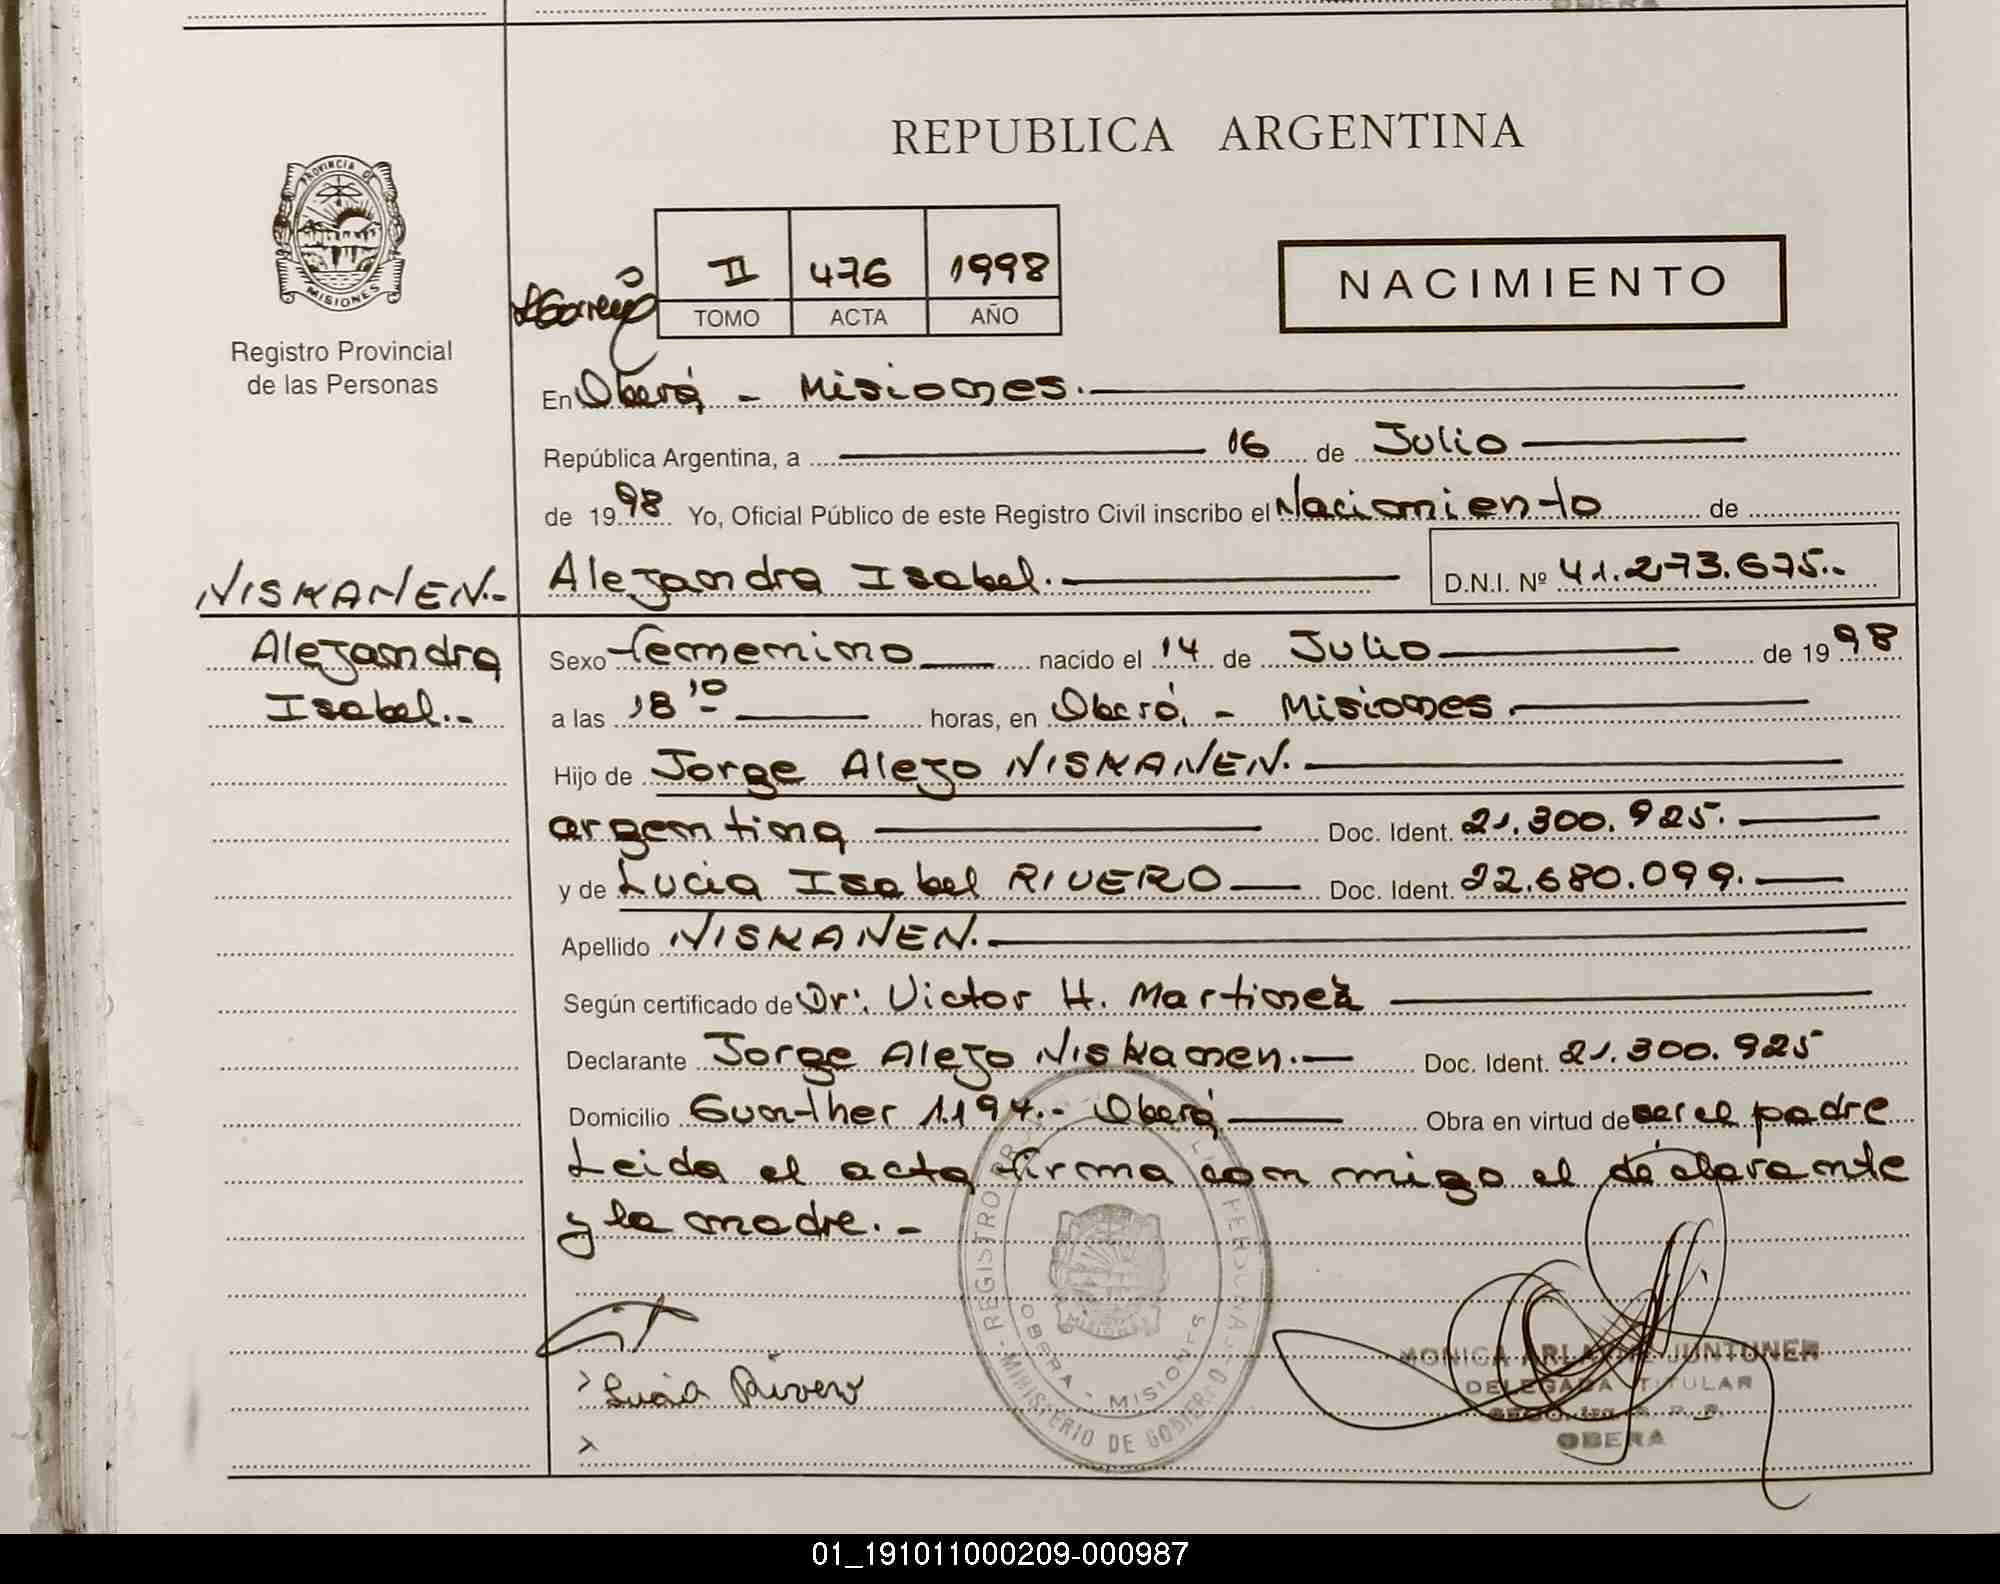 REPUBLICA ARGENTINA
PROVINCIA DE
MISIONES
Registro Provincial
de las Personas
II 476 1998
TOMO ACTA AÑO
NACIMIENTO
En Oberá - Misiones.
República Argentina, a 16 de Julio
de 1998 Yo, Oficial Público de este Registro Civil inscribo el Nacimiento de
NISKANEN.- Alejandra Isabel. D.N.I. Nº 41.273.675.-
Alejandra Sexo femenino nacido el 14 de Julio de 1998
Isabel.- a las 18 10 horas, en Oberá, - Misiones
Hijo de Jorge Alejo NISKANEN.
argentina Doc. Ident. 21.300.925.
y de Lucia Isabel RIVERO Doc. Ident. 22.680.099.
Apellido NISKANEN.
Según certificado de Dr: Victor H. Martinez
Declarante Jorge Alejo Niskanen. Doc. Ident. 21.300.925
Domicilio Gunther 1.194.- Oberá Obra en virtud de ser el padre
Leida el acta firma con migo el declarante
y la madre.-
Lucia Rivero
REGISTRO PERSONAS
OBERA - MISIONES
MINISTERIO DE GOBIERNO
MISIONES
MONICA JUNTUNER
DELEGADA TITULAR
OBERA
01_191011000209-000987